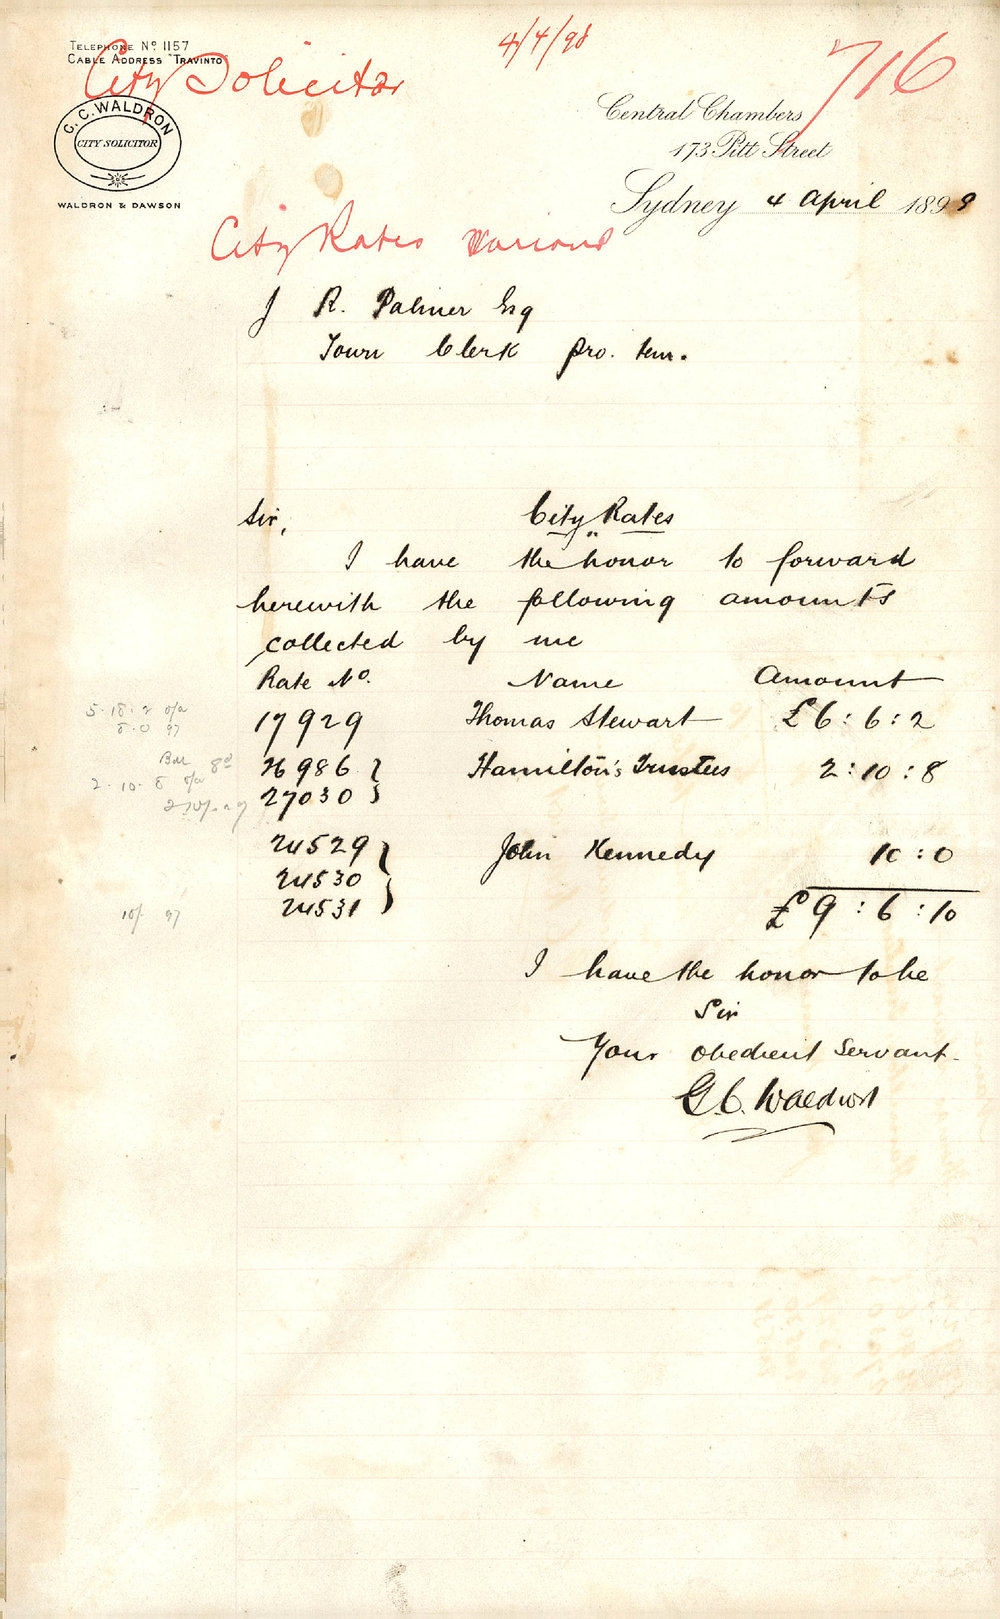 4/4/98
716
TELEPHONE Nº 1157
CABLE ADDRESS "TRAVINTO
City Solicitor
G. C. WALDRON
CITY SOLICITOR
WALDRON & DAWSON
Central Chambers
173 Pitt Street
Sydney 4 April 1898
City Rates various
J R. Palmer Esq
Town Clerk pro. tem.
Sir,
City Rates
I have the honor to forward
herewith the following amounts
collected by me
Rate No. Name Amount
5.18.2 o/a
8.0 97
17929 Thomas Stewart £6:6:2
Bal 8d
2.10.8 o/a
26986 Hamilton's Trustees 2:10:8
27030
24529 John Kennedy 10:0
24530
10/- 97
24531
£9:6:10
I have the honor to be
Sir
Your obedient Servant.
G. C. Waldron